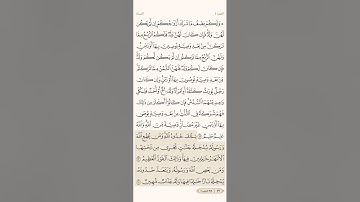 ۞ وَلَكُمْ نِصْفُ مَا تَرَكَ أَزْوَٰجُكُمْ إِن لَّمْ يَكُن
لَّهُنَّ وَلَدٌ فَإِن كَانَ لَهُنَّ وَلَدٌ فَلَكُمُ ٱلرُّبُعُ مِمَّا
تَرَكْنَ مِنۢ بَعْدِ وَصِيَّةٍ يُوصِينَ بِهَآ أَوْ دَيْنٍ
وَلَهُنَّ ٱلرُّبُعُ مِمَّا تَرَكْتُمْ إِن لَّمْ يَكُن لَّكُمْ وَلَدٌ
فَإِن كَانَ لَكُمْ وَلَدٌ فَلَهُنَّ ٱلثُّمُنُ مِمَّا تَرَكْتُم
مِّنۢ بَعْدِ وَصِيَّةٍ تُوصُونَ بِهَآ أَوْ دَيْنٍ وَإِن كَانَ
رَجُلٌ يُورَثُ كَلَٰلَةً أَوِ ٱمْرَأَةٌ وَلَهُۥٓ أَخٌ أَوْ أُخْتٌ فَلِكُلِّ
وَٰحِدٍ مِّنْهُمَا ٱلسُّدُسُ فَإِن كَانُوٓا۟ أَكْثَرَ مِن ذَٰلِكَ
فَهُمْ شُرَكَآءُ فِى ٱلثُّلُثِ مِنۢ بَعْدِ وَصِيَّةٍ يُوصَىٰ
بِهَآ أَوْ دَيْنٍ غَيْرَ مُضَآرٍّ وَصِيَّةً مِّنَ ٱللَّهِ وَٱللَّهُ
عَلِيمٌ حَلِيمٌ ١٢ تِلْكَ حُدُودُ ٱللَّهِ وَمَن يُطِعِ ٱللَّهَ
وَرَسُولَهُۥ يُدْخِلْهُ جَنَّٰتٍ تَجْرِى مِن تَحْتِهَا
ٱلْأَنْهَٰرُ خَٰلِدِينَ فِيهَا وَذَٰلِكَ ٱلْفَوْزُ ٱلْعَظِيمُ ١٣
وَمَن يَعْصِ ٱللَّهَ وَرَسُولَهُۥ وَيَتَعَدَّ حُدُودَهُۥ
يُدْخِلْهُ نَارًا خَٰلِدًا فِيهَا وَلَهُۥ عَذَابٌ مُّهِينٌ ١٤